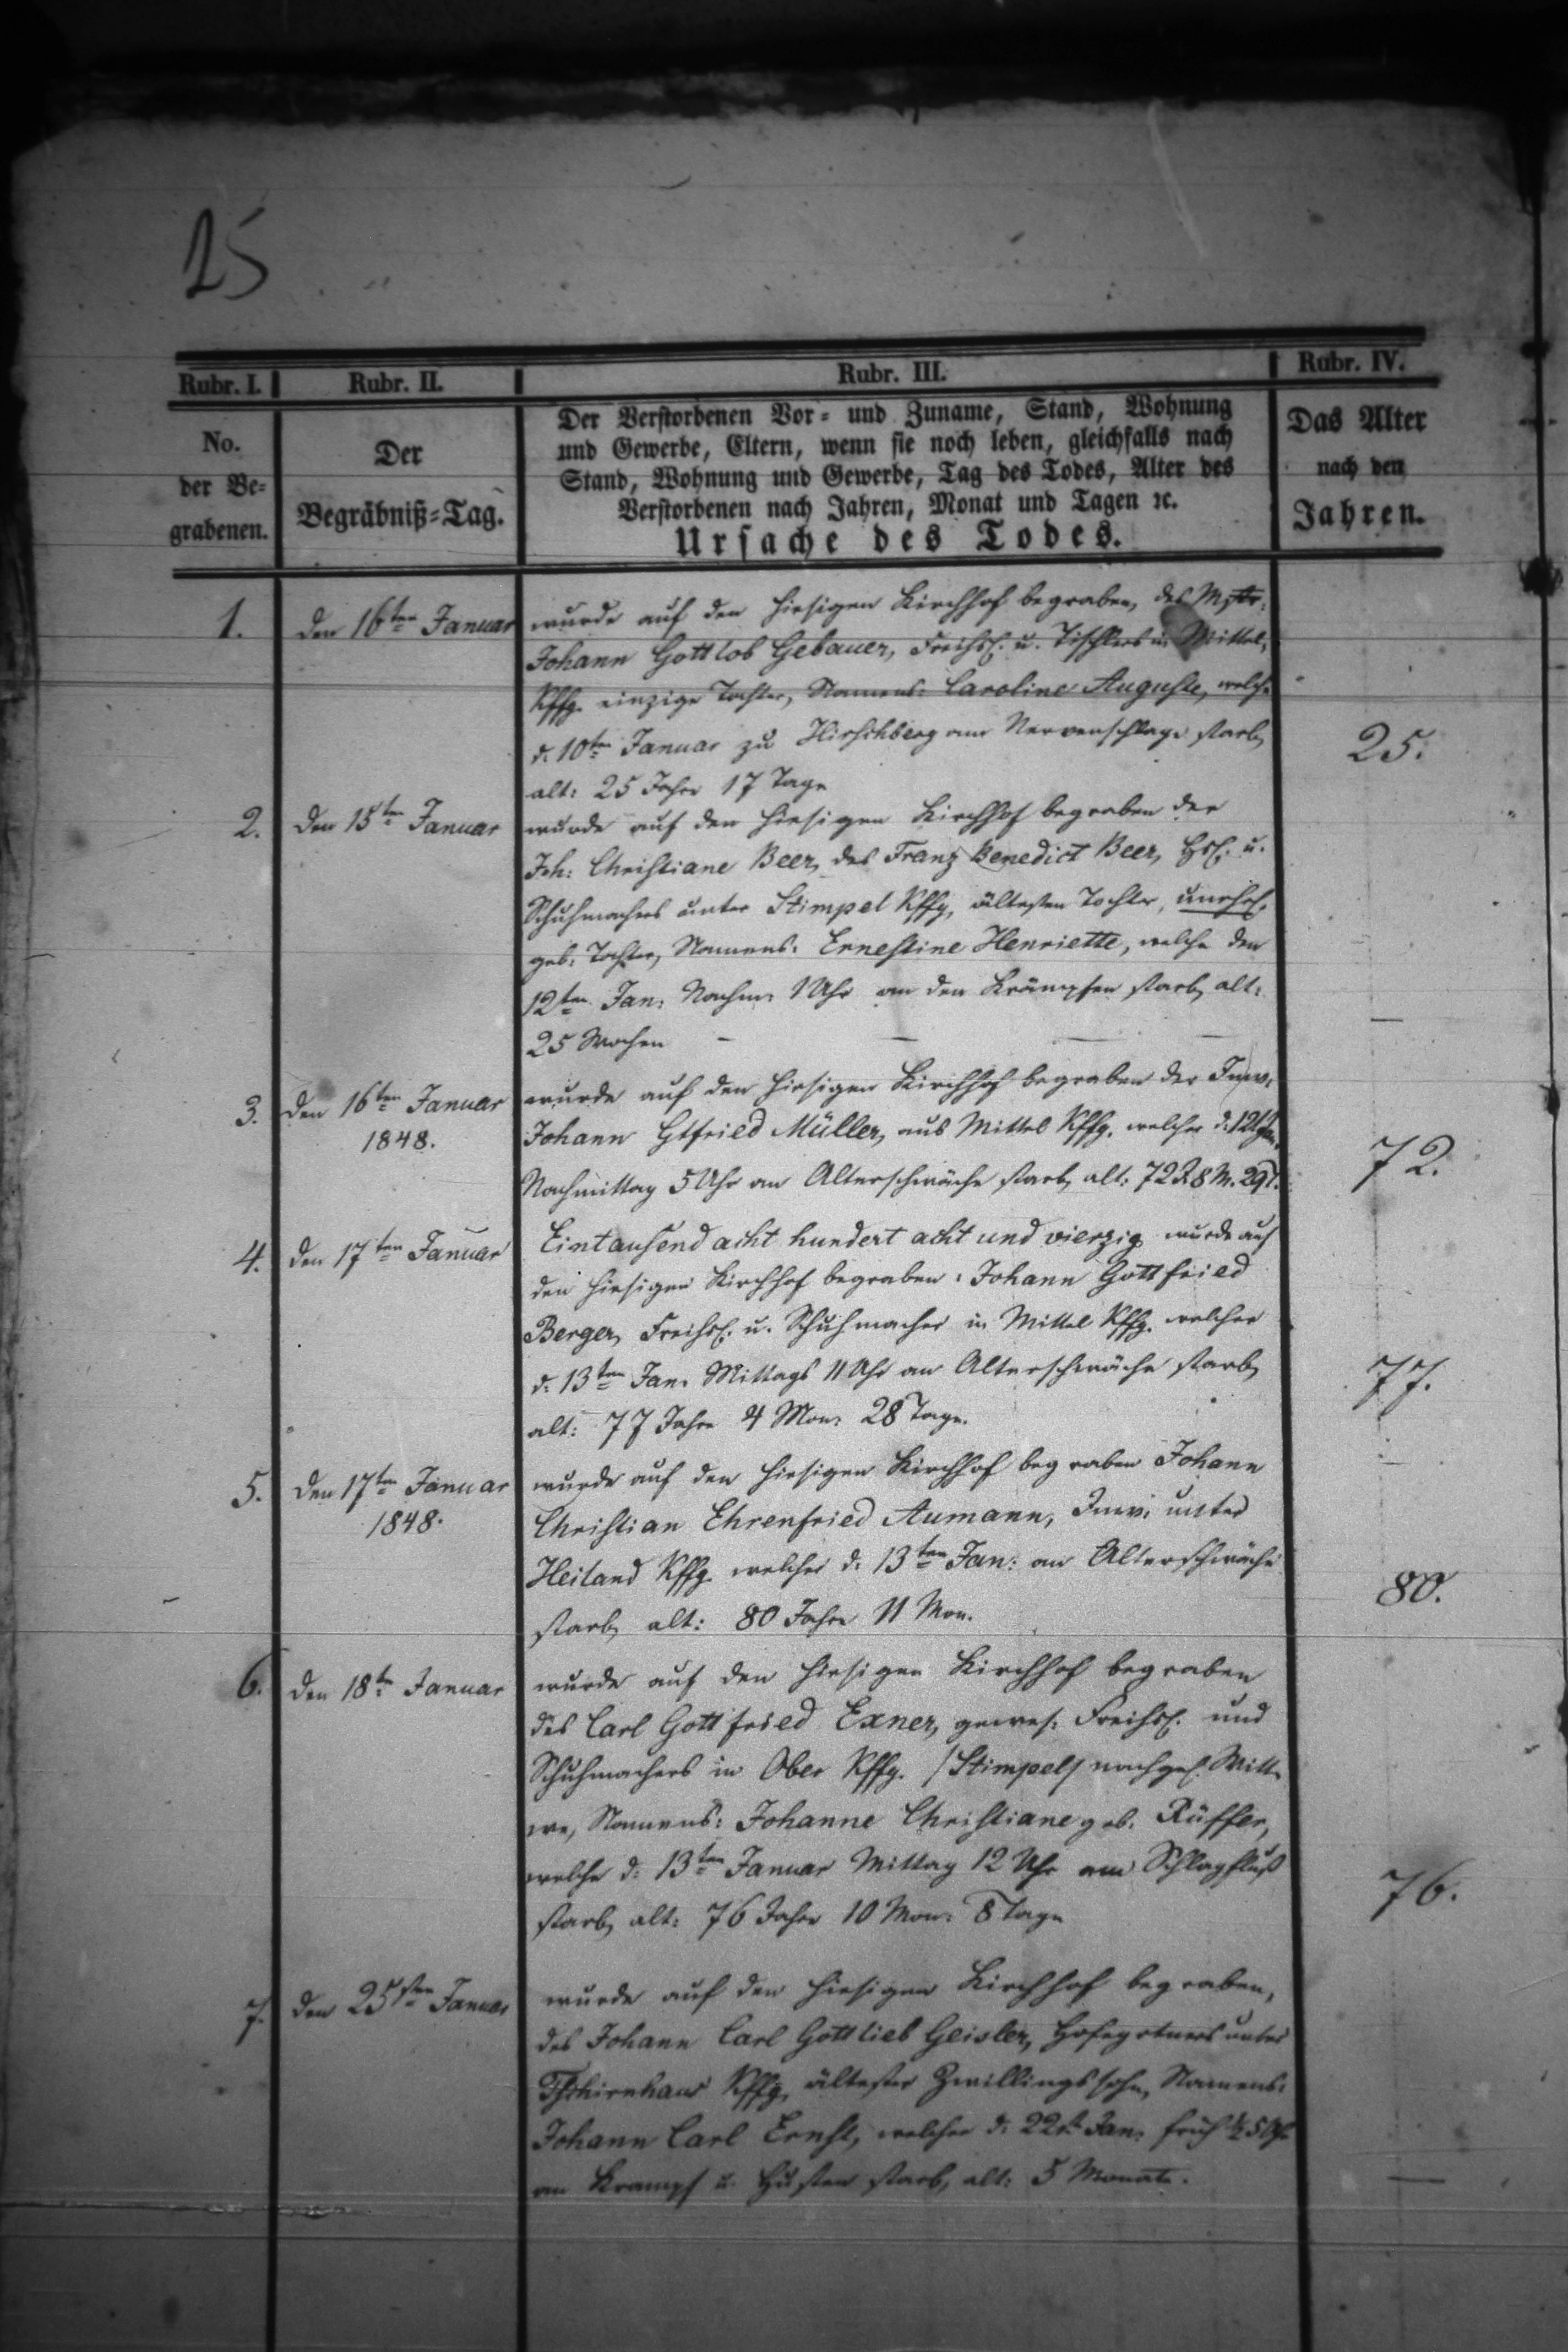 25
Rubr. I. Rubr. II. Rubr. III. Rubr. IV.
No.
der Be-
grabenen.
Der
Begräbniß-Tag.
Der Verstorbenen Vor- und Zuname, Stand, Wohnung
und Gewerbe, Eltern, wenn sie noch leben, gleichfalls nach
Stand, Wohnung und Gewerbe, Tag des Todes, Alter des
Verstorbenen nach Jahren, Monat und Tagen ꝛc.
Ursache des Todes.
Das Alter
nach den
Jahren.
1. den 16ten Januar wurde auf den hiesigen Kirchhof begraben, des Mstr.
Johann Gottlob Gebauer, Freihsl. u. Tischlers in Mittel,
Kffg. einzige Tochter, Namens: Caroline Auguste, welche
d. 10ten Januar zu Hirschberg am Nervenschlage starb, 25.
alt: 25 Jahr 17 Tage
2. den 15ten Januar wurde auf den hiesigen Kirchhof begraben der
Joh: Christiane Beer, des Franz Benedict Beer, Hsl. u.
Schuhmachers unter Stimpel Kffg, ältesten Tochter, unehel.
geb: Tochter, Namens: Ernestine Henriette, welche den
12ten Jan: Nachm: 1 Uhr an den Krämpfen starb, alt:
25 Wochen – – – – —
3. den 16ten Januar
1848.
wurde auf den hiesigen Kirchhof begraben der Inw:
Johann Gtfried Müller, aus Mittel Kffg. welcher d. 12
Nachmittag 5 Uhr an Alterschwäche starb, alt: 72 J. 8 M. 29 T. 72.
4. den 17ten Januar Eintausend acht hundert acht und vierzig wurde auf
den hiesigen Kirchhof begraben: Johann Gottfried
Berger, Freihsl. u. Schuhmacher in Mittel Kffg. welcher
d. 13ten Jan: Mittags 11 Uhr an Alterschwäche starb, 77.
alt: 77 Jahre 4 Mon: 28 Tage.
5. den 17ten Januar
1848.
wurde auf den hiesigen Kirchhof begraben Johann
Christian Ehrenfried Aumann, Inw: unter
Heiland Kffg. welcher d: 13ten Jan: an Alterschwäche
starb, alt: 80 Jahre 11 Mon. 80.
6. den 18ten Januar wurde auf den hiesigen Kirchhof begraben
des Carl Gottfried Exner, gewes: Freihsl. und
Schuhmachers in Ober Kffg. /Stimpel/ nachgel. Witt-
we, Namens: Johanne Christiane geb. Rüffer,
welche d: 13ten Januar Mittag 12 Uhr am Schlagfluß
starb, alt: 76 Jahr 10 Mon: 8 Tage 76.
7. den 25sten Januar wurde auf den hiesigen Kirchhof begraben,
des Johann Carl Gottlieb Geisler, Hofegrtners unter
Tschirnhaus Kffg, ältester Zwillingssohn, Namens:
Johann Carl Ernst, welcher d. 22st. Jan: früh ½ 5 Uhr
an Krampf u. Husten starb, alt: 5 Monate. —